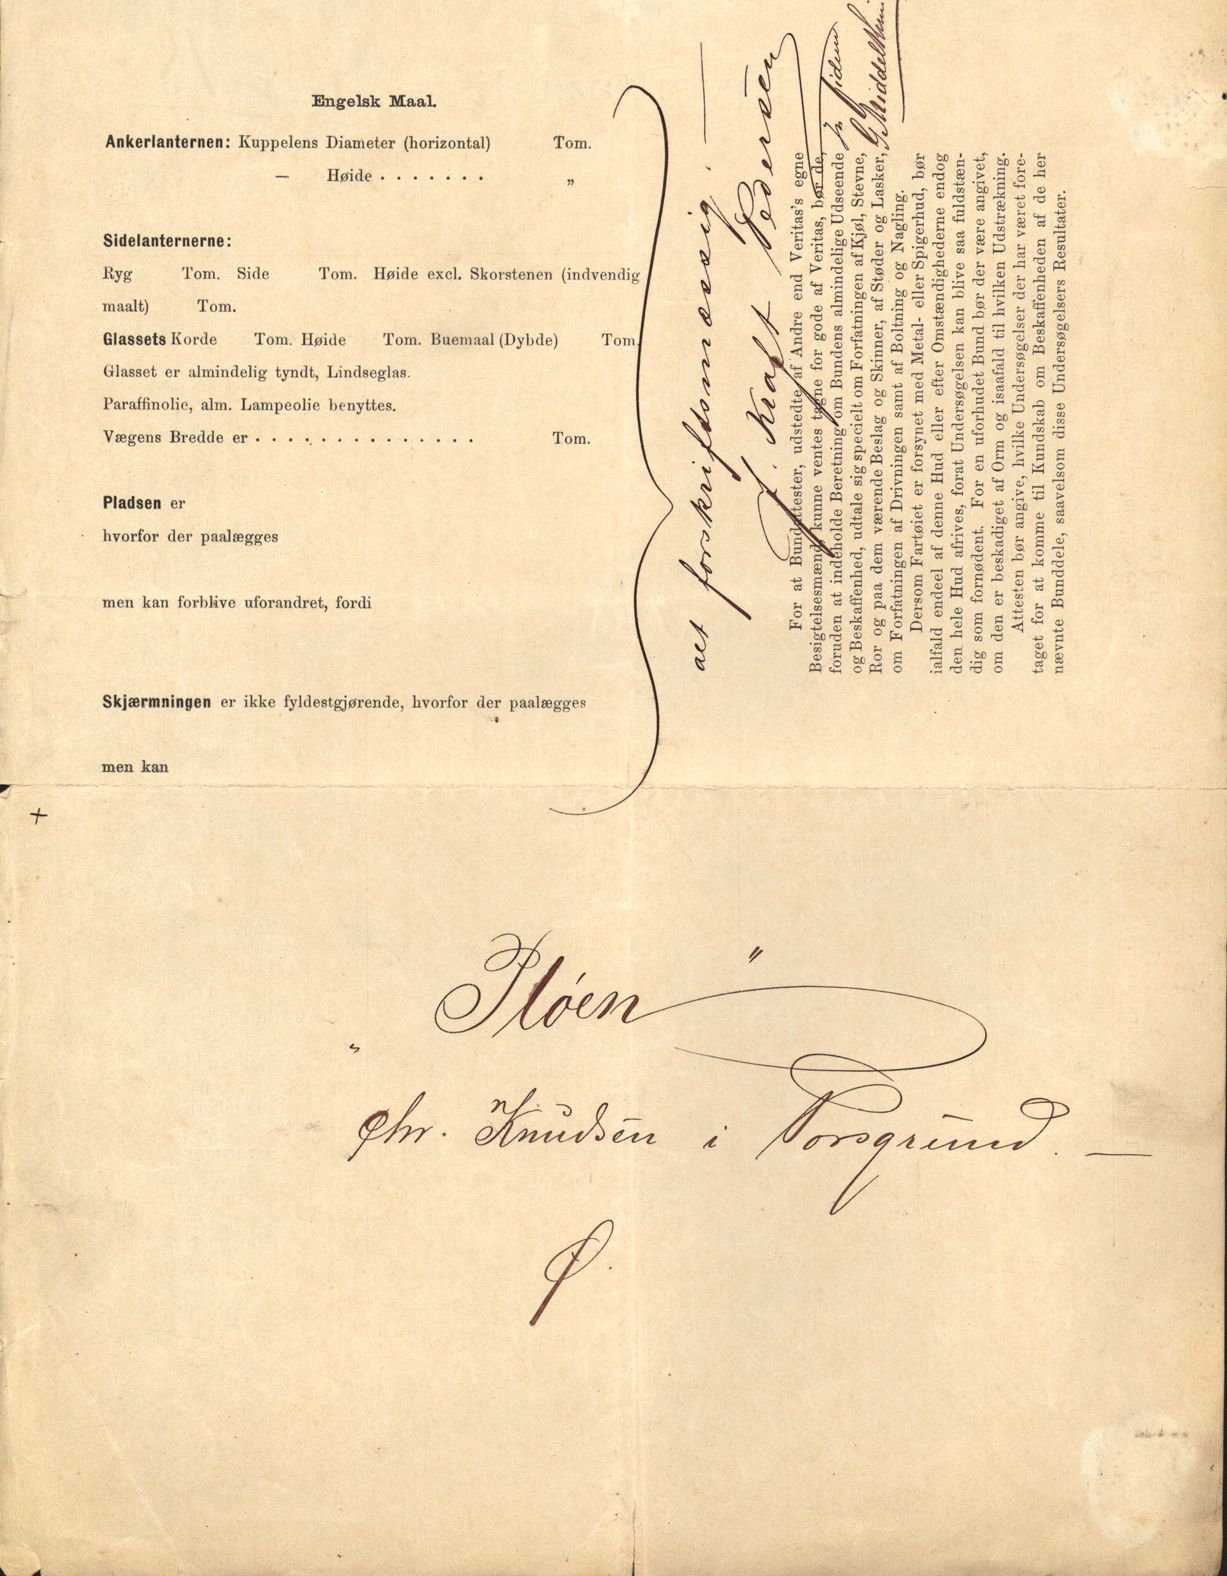 Engelsk Maal.
Ankerlanternen: Kuppelens Diameter (horizontal) Tom.
— Høide . . . . . . . „
Sidelanternerne:
Ryg Tom. Side Tom. Høide excl. Skorstenen (indvendig
maalt) Tom.
Glassets Korde Tom. Høide Tom. Buemaal (Dybde) Tom.
Glasset er almindelig tyndt, Lindseglas.
Paraffinolie, alm. Lampeolie benyttes.
Vægens Bredde er . . . . . . . . . . . . . . . Tom.
Pladsen er
hvorfor der paalægges
men kan forblive uforandret, fordi
Skjærmningen er ikke fyldestgjørende, hvorfor der paalægges
men kan
alt forskriftsmæssig. —
J. Kraft Pedersen
G. Middelthun
For at Bundattester, udstedte af Andre end Veritas's egne
Besigtelsesmænd, kunne ventes tagne for gode af Veritas, bør de,
foruden at indeholde Beretning om Bundens almindelige Udseende
og Beskaffenhed, udtale sig specielt om Forfatningen af Kjøl, Stevne,
Ror og paa dem værende Beslag og Skinner, af Støder og Lasker,
om Forfatningen af Drivningen samt af Boltning og Nagling.
Dersom Fartøiet er forsynet med Metal- eller Spigerhud, bør
ialfald endeel af denne Hud eller efter Omstændighederne endog
den hele Hud afrives, forat Undersøgelsen kan blive saa fuldstæn-
dig som fornødent. For en uforhudet Bund bør der være angivet,
om den er beskadiget af Orm og isaafald til hvilken Udstrækning.
Attesten bør angive, hvilke Undersøgelser der har været fore-
taget for at komme til Kundskab om Beskaffenheden af de her
nævnte Bunddele, saavelsom disse Undersøgelsers Resultater.
+
„Pløen"
Chr. Knudsen i Porsgrund. —
Ø.